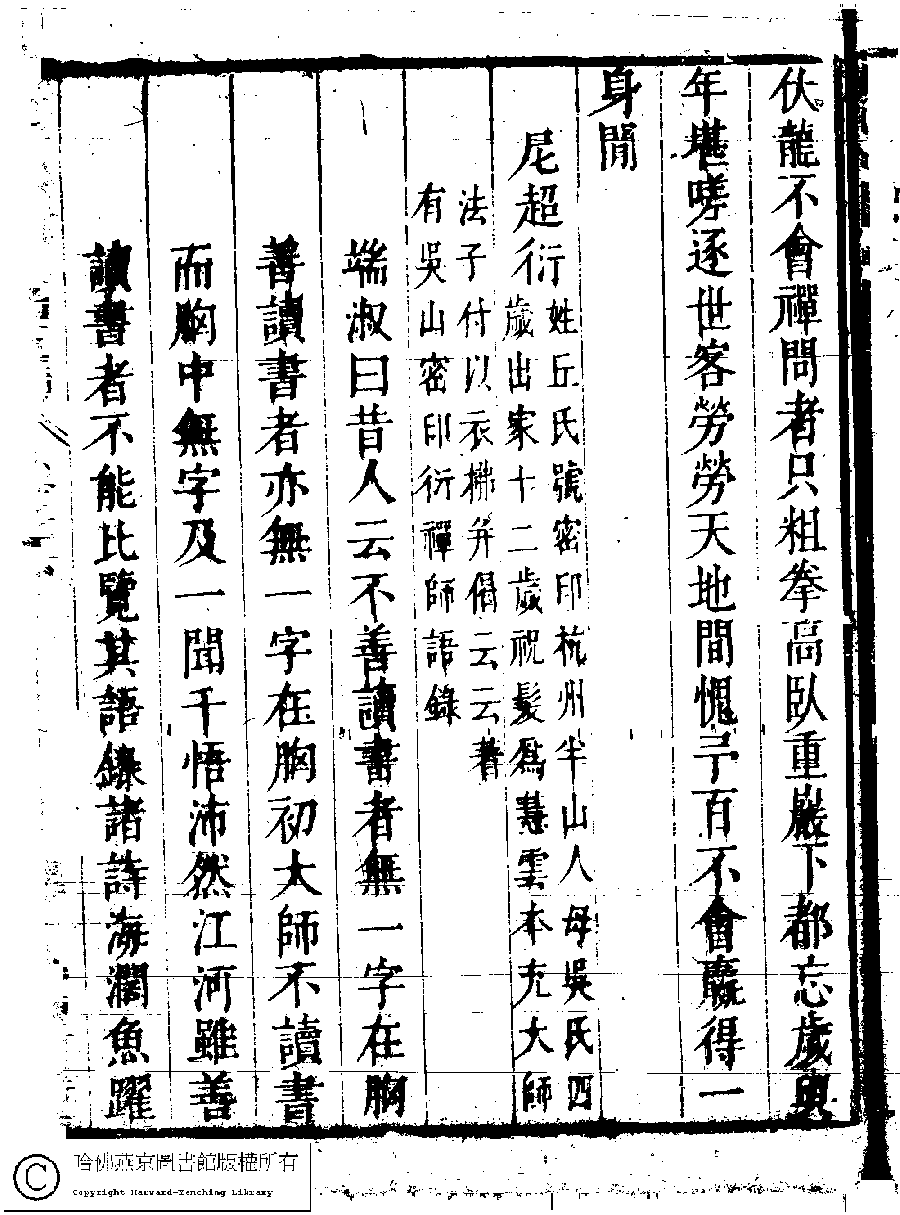 伏龍不會禪問者只粗拳高臥重巖下都忘歲與
年堪嗟逐世客勞勞天地間愧予百不會贏得一
身閒
尼超衍姓丘氏號密印杭州半山人母吳氏四
歲出家十二歲祝髮爲慧雲本充大師
法子付以衣拂并偈云云著
有吳山密印衍禪師語錄
端淑曰昔人云不善讀書者無一字在胸
善讀書者亦無一字在胸初大師不讀書
而胸中無字及一聞千悟沛然江河雖善
讀書者不能比覽其語錄諸詩海濶魚躍
哈佛燕京圖書館版權所有
Copyright Harvard-Yenching Library